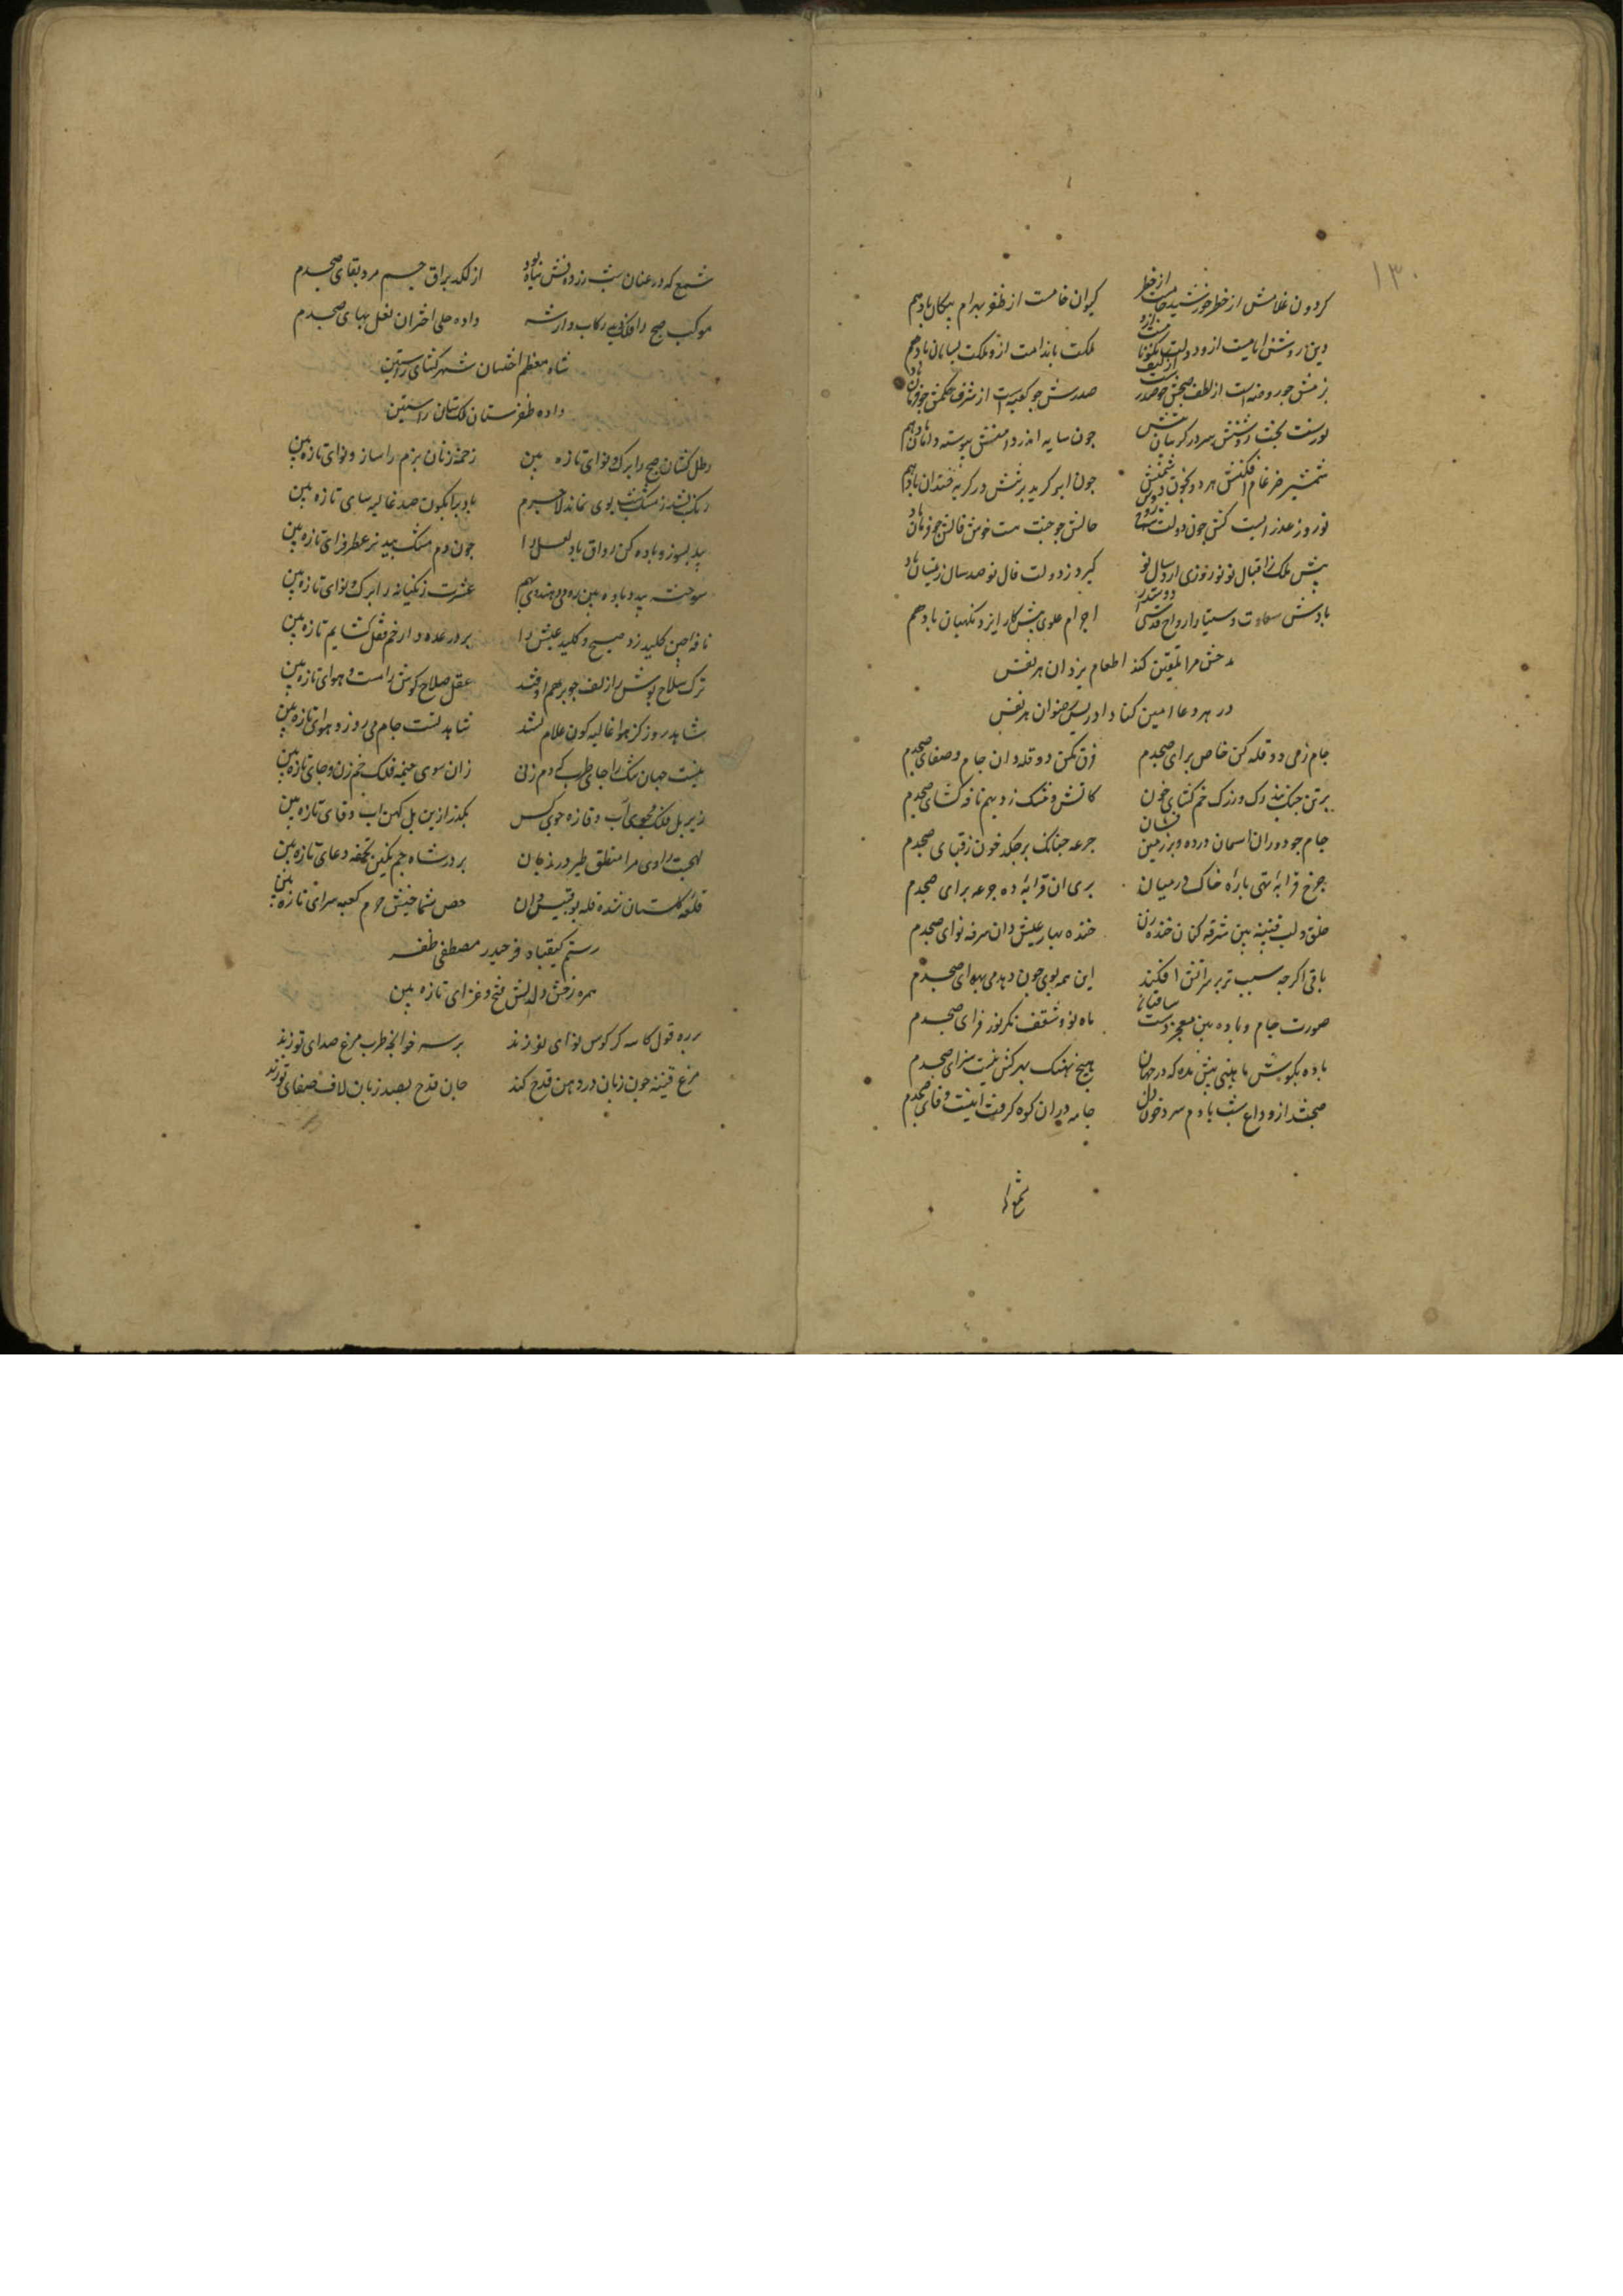 ۱۳۰
کردون غلامش از خطر خورشید جامست از خطر کیوان خامست از ظفر بهرام پیکان باد هم
دین روشن ایامیست ازو دولت ملکت باندامت ازو ملکت بسامان باد هم
بزمش چو روضه است از لطف صدرش چو کعبه است از شرف حکمش
نورست بخت روشنش سر در کریبان چون سایه اندر دامنش پیوسته دامان باد هم
شمشیر ضرغام افکنش هر دو بخون دشمنش چون ابر کرید بر تنش در کریه خندان باد هم
نوروز چون دولت حالش چو جنت خوش فالش چو
پیش ملک ز اقبال نو نوروزی آرد سال نو کیرد ز دولت فال نو صد سال زینسان باد
بادش سعادت دستیار ارواح قدسی دوستدار اجرام علوی پیش کار ایزد نکهبان باد هم
مدحش مرا تلقین کند الهام یزدان هر نفس
در هر دعا امین کناد ادریس و رضوان هر نفس
جام ز می دو قله کن خاص برای صبحدم فرق مکن دو قله دان جام و صفای صبحدم
برتن چنک بند رک وز رک خم کشای خون کاتش و مشک زد بهم نافه کشای صبحدم
جام چو دور اسمان درده و بر زمین فشان جرعه چنانک برچکد خون ز قبای صبحدم
چرخ قرابهٔ تهی پارهٔ خاک درمیان پری ان قرابهٔ ده جرعه برای صبحدم
حلق و لب قنینه بین سرفه کنان خنده زن خنده بهار عیش دان سرفه نوای صبحدم
باقی اکرچه سیب تر بر سر اتش افکند این همه بوی چون دهد می بهوای صبحدم
صورت جام و باده بین معجز دست ساقیان ماه نو و شفق نکر نور فزای صبحدم
باده بکوش ماهیی بیش مده که در جهان هیچ نهنک بحر کش نیست سزای صبحدم
صبح شد از وداع شب با دم سرد خون دل جامه دران کوه کرفت اینت وفای صبحدم
شمع
شمع که در عنان شب زرده شش سیاه بود از لکد براق جم مرد بقای صبحدم
موکب صبح را فلک دید رکاب دار شه داده حلی اختران نعل بهای صبحدم
شاه معظم اخستان شهرکشای راستین
داده ظفرستان ملک ستان راستین
رطل کشان صبح را برک و نوای تازه بین زخمهٔ زنان بزم را ساز و نوای تازه بین
رنک بشد ز مشک شب بوی نماند لاجرم باد بر ابکون صدف غالیه سای تازه بین
بید بسوز و باده کن راوق و باده لعل را چون دم مشک بید تر عطر فزای تازه بین
سوخته بید و باده بین رومی و هندوی بهم عشرت زنکیانه را برک و نوای تازه بین
نافه چین کلید زد صبح و کلید عیش را بر در عده دار خم قفل کشایم تازه بین
ترک سلاح پوش را زلف چو برهم اوفتد عقل صلاح کوش را مست هوای تازه بین
شاهد روز کز هوا غالیه کون غلام شد شاهد تست جام می روز هوای تازه بین
نیست جهان تنک را جای طرب که دم زنی زان سوی خیمه فلک خم زن و جای تازه بین
زیر پل فلک مجوی آب وفا ز جوی کس بکذر ازین پل کهن اب وفای تازه بین
لهجت راوی مرا منطق طیر در زبان بر در شاه جم نکین تحفه دعای تازه بین
قلعه کلستان شده قله بوقبیس دان حصن شماخیش حرم کعبه سرای تازه بین
رستم کیقباد فر حیدر مصطفی ظفر
همره رخش و دلدلش فتح و غزای تازه بین
بره قول کاسه کر کوس نوای نو زند بر سر خوانچه طرب مرغ صدای نو زند
مرغ قنینه چون زبان در دهن قدح کند جان قدح بصد زبان لاف صفای نو زند